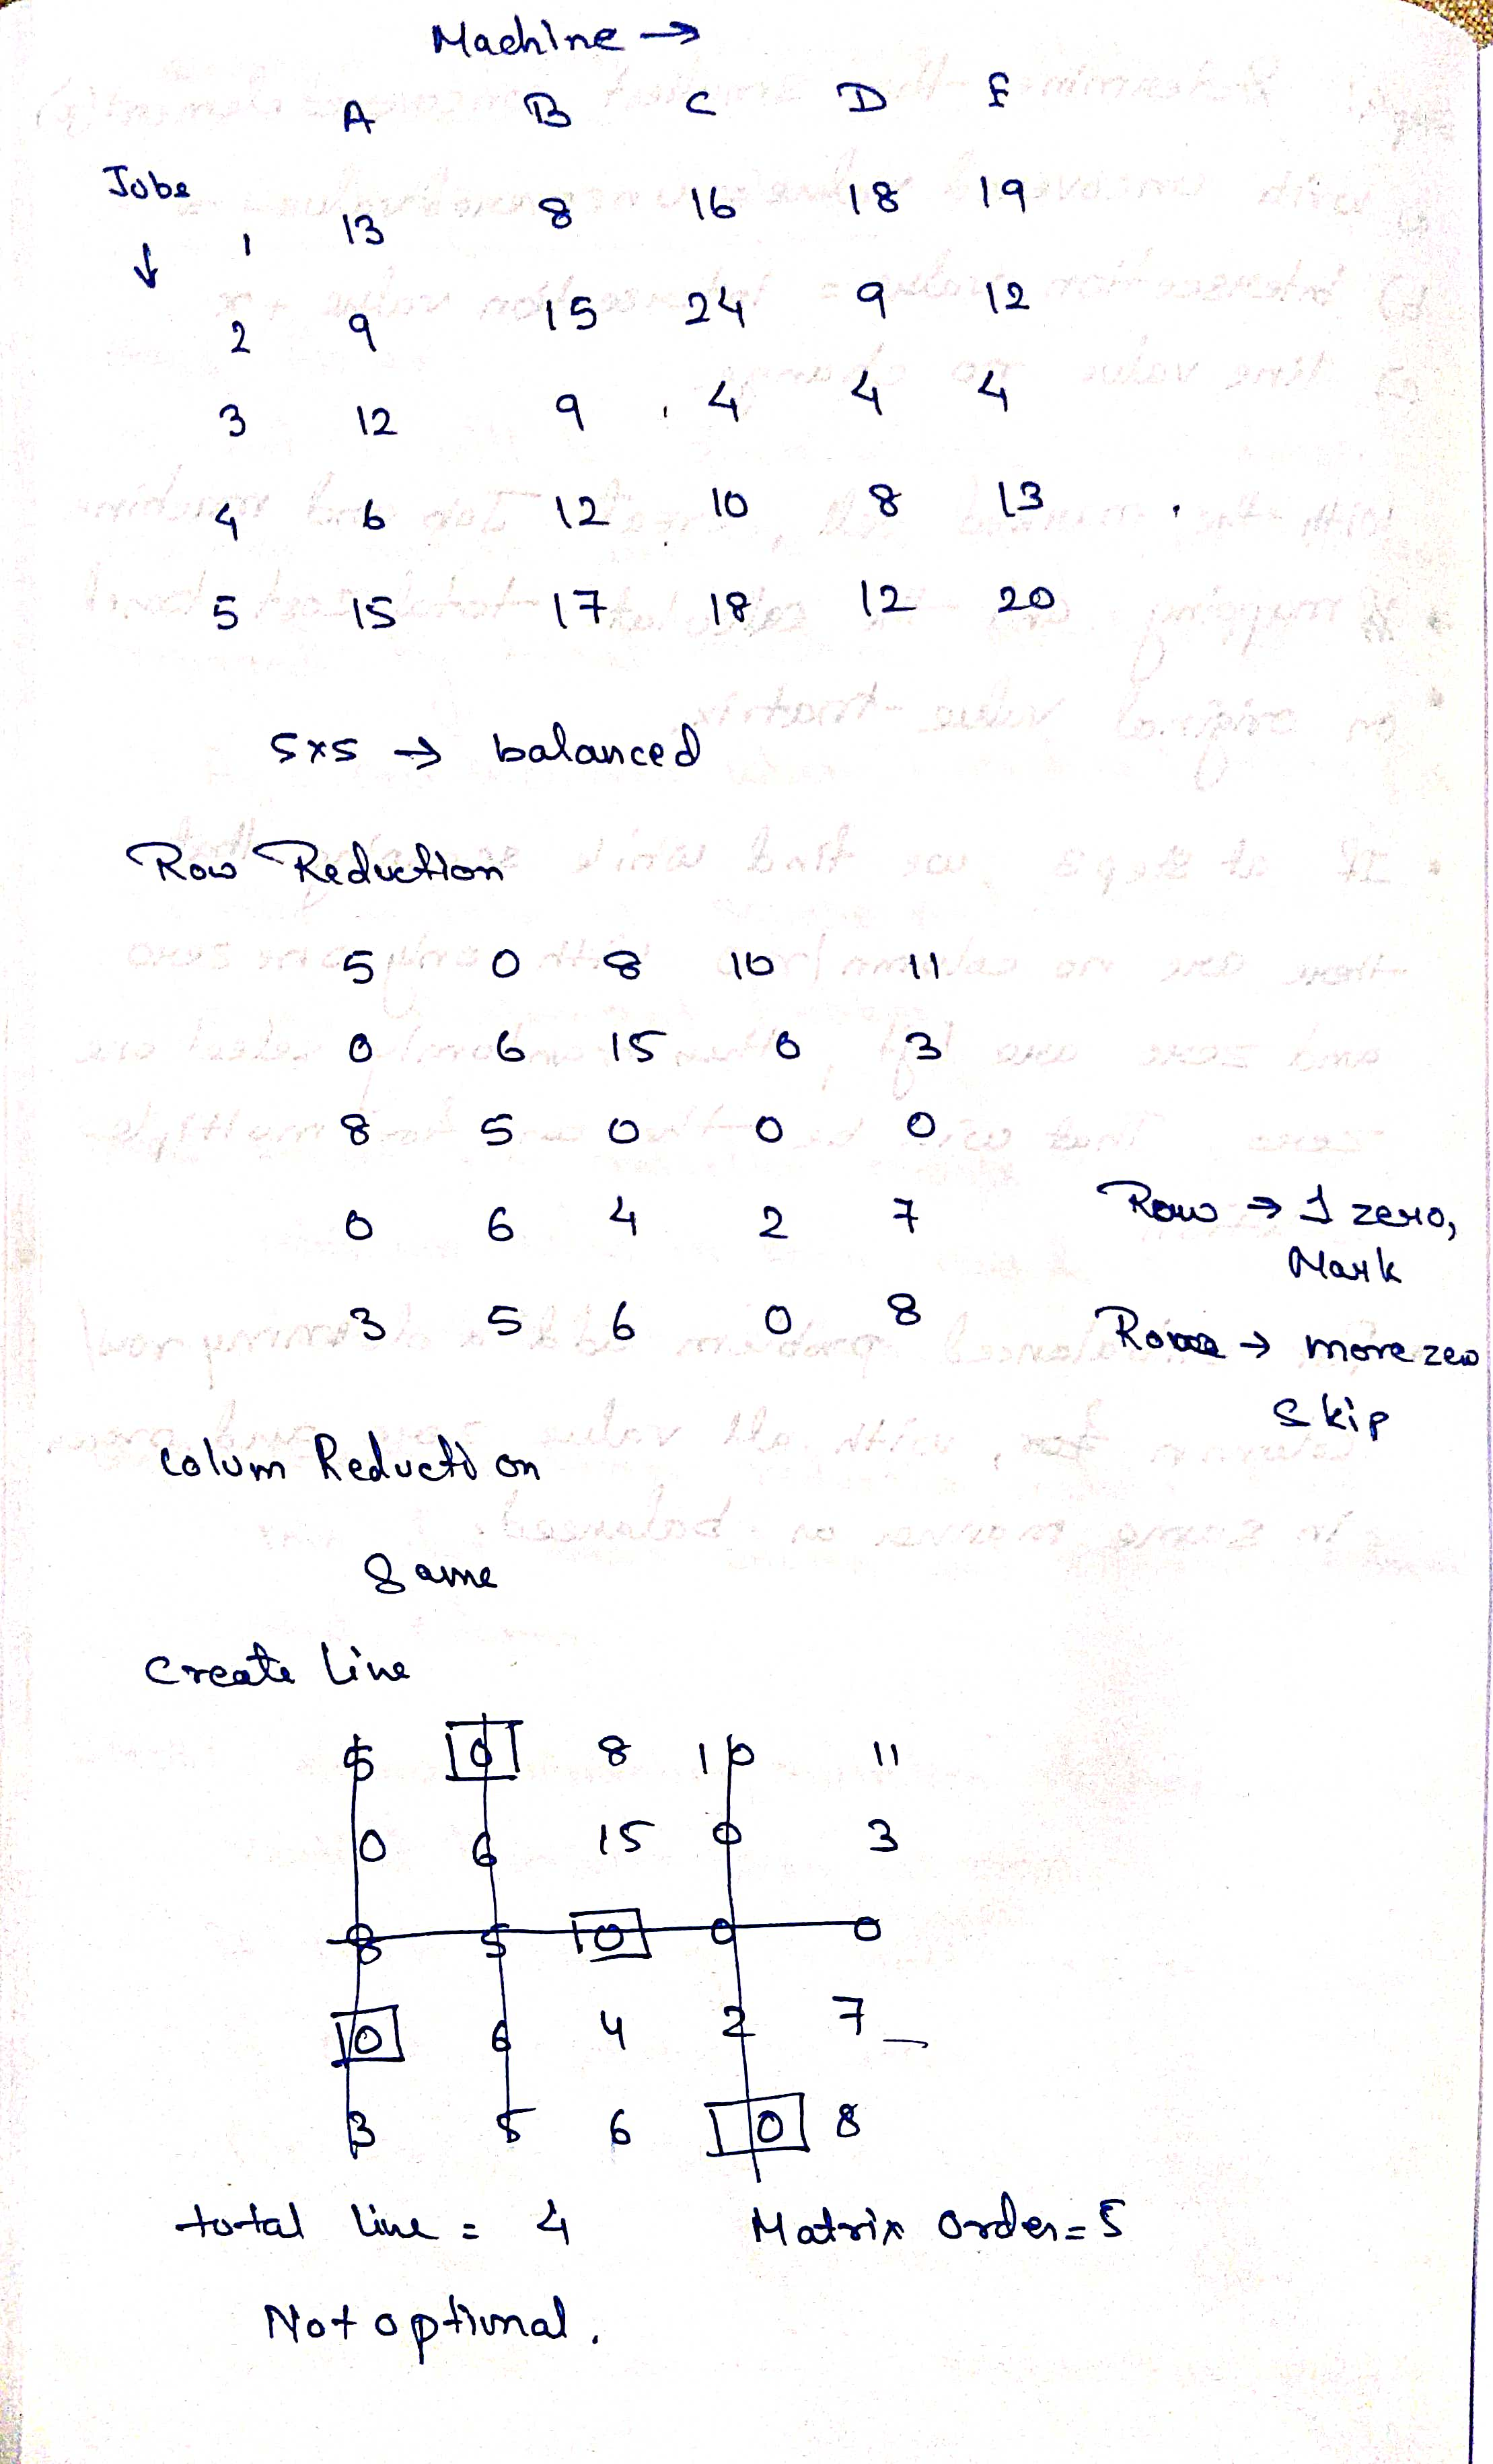 Machine →
A B C D E
Jobs ↓
1 13 8 16 18 19
2 9 15 24 9 12
3 12 9 4 4 4
4 6 12 10 8 13
5 15 17 18 12 20
5x5 → balanced
Row Reduction
5 0 8 10 11
0 6 15 0 3
8 5 0 0 0
0 6 4 2 7
3 5 6 0 8
Row → 1 zero,
Mark
Rows → more zero
Skip
Colum Reduction
Same
Create Line
5 0 8 10 11
0 6 15 0 3
8 5 0 0 0
0 6 4 2 7
3 5 6 0 8
total line = 4 Matrix Order = 5
Not optimal.